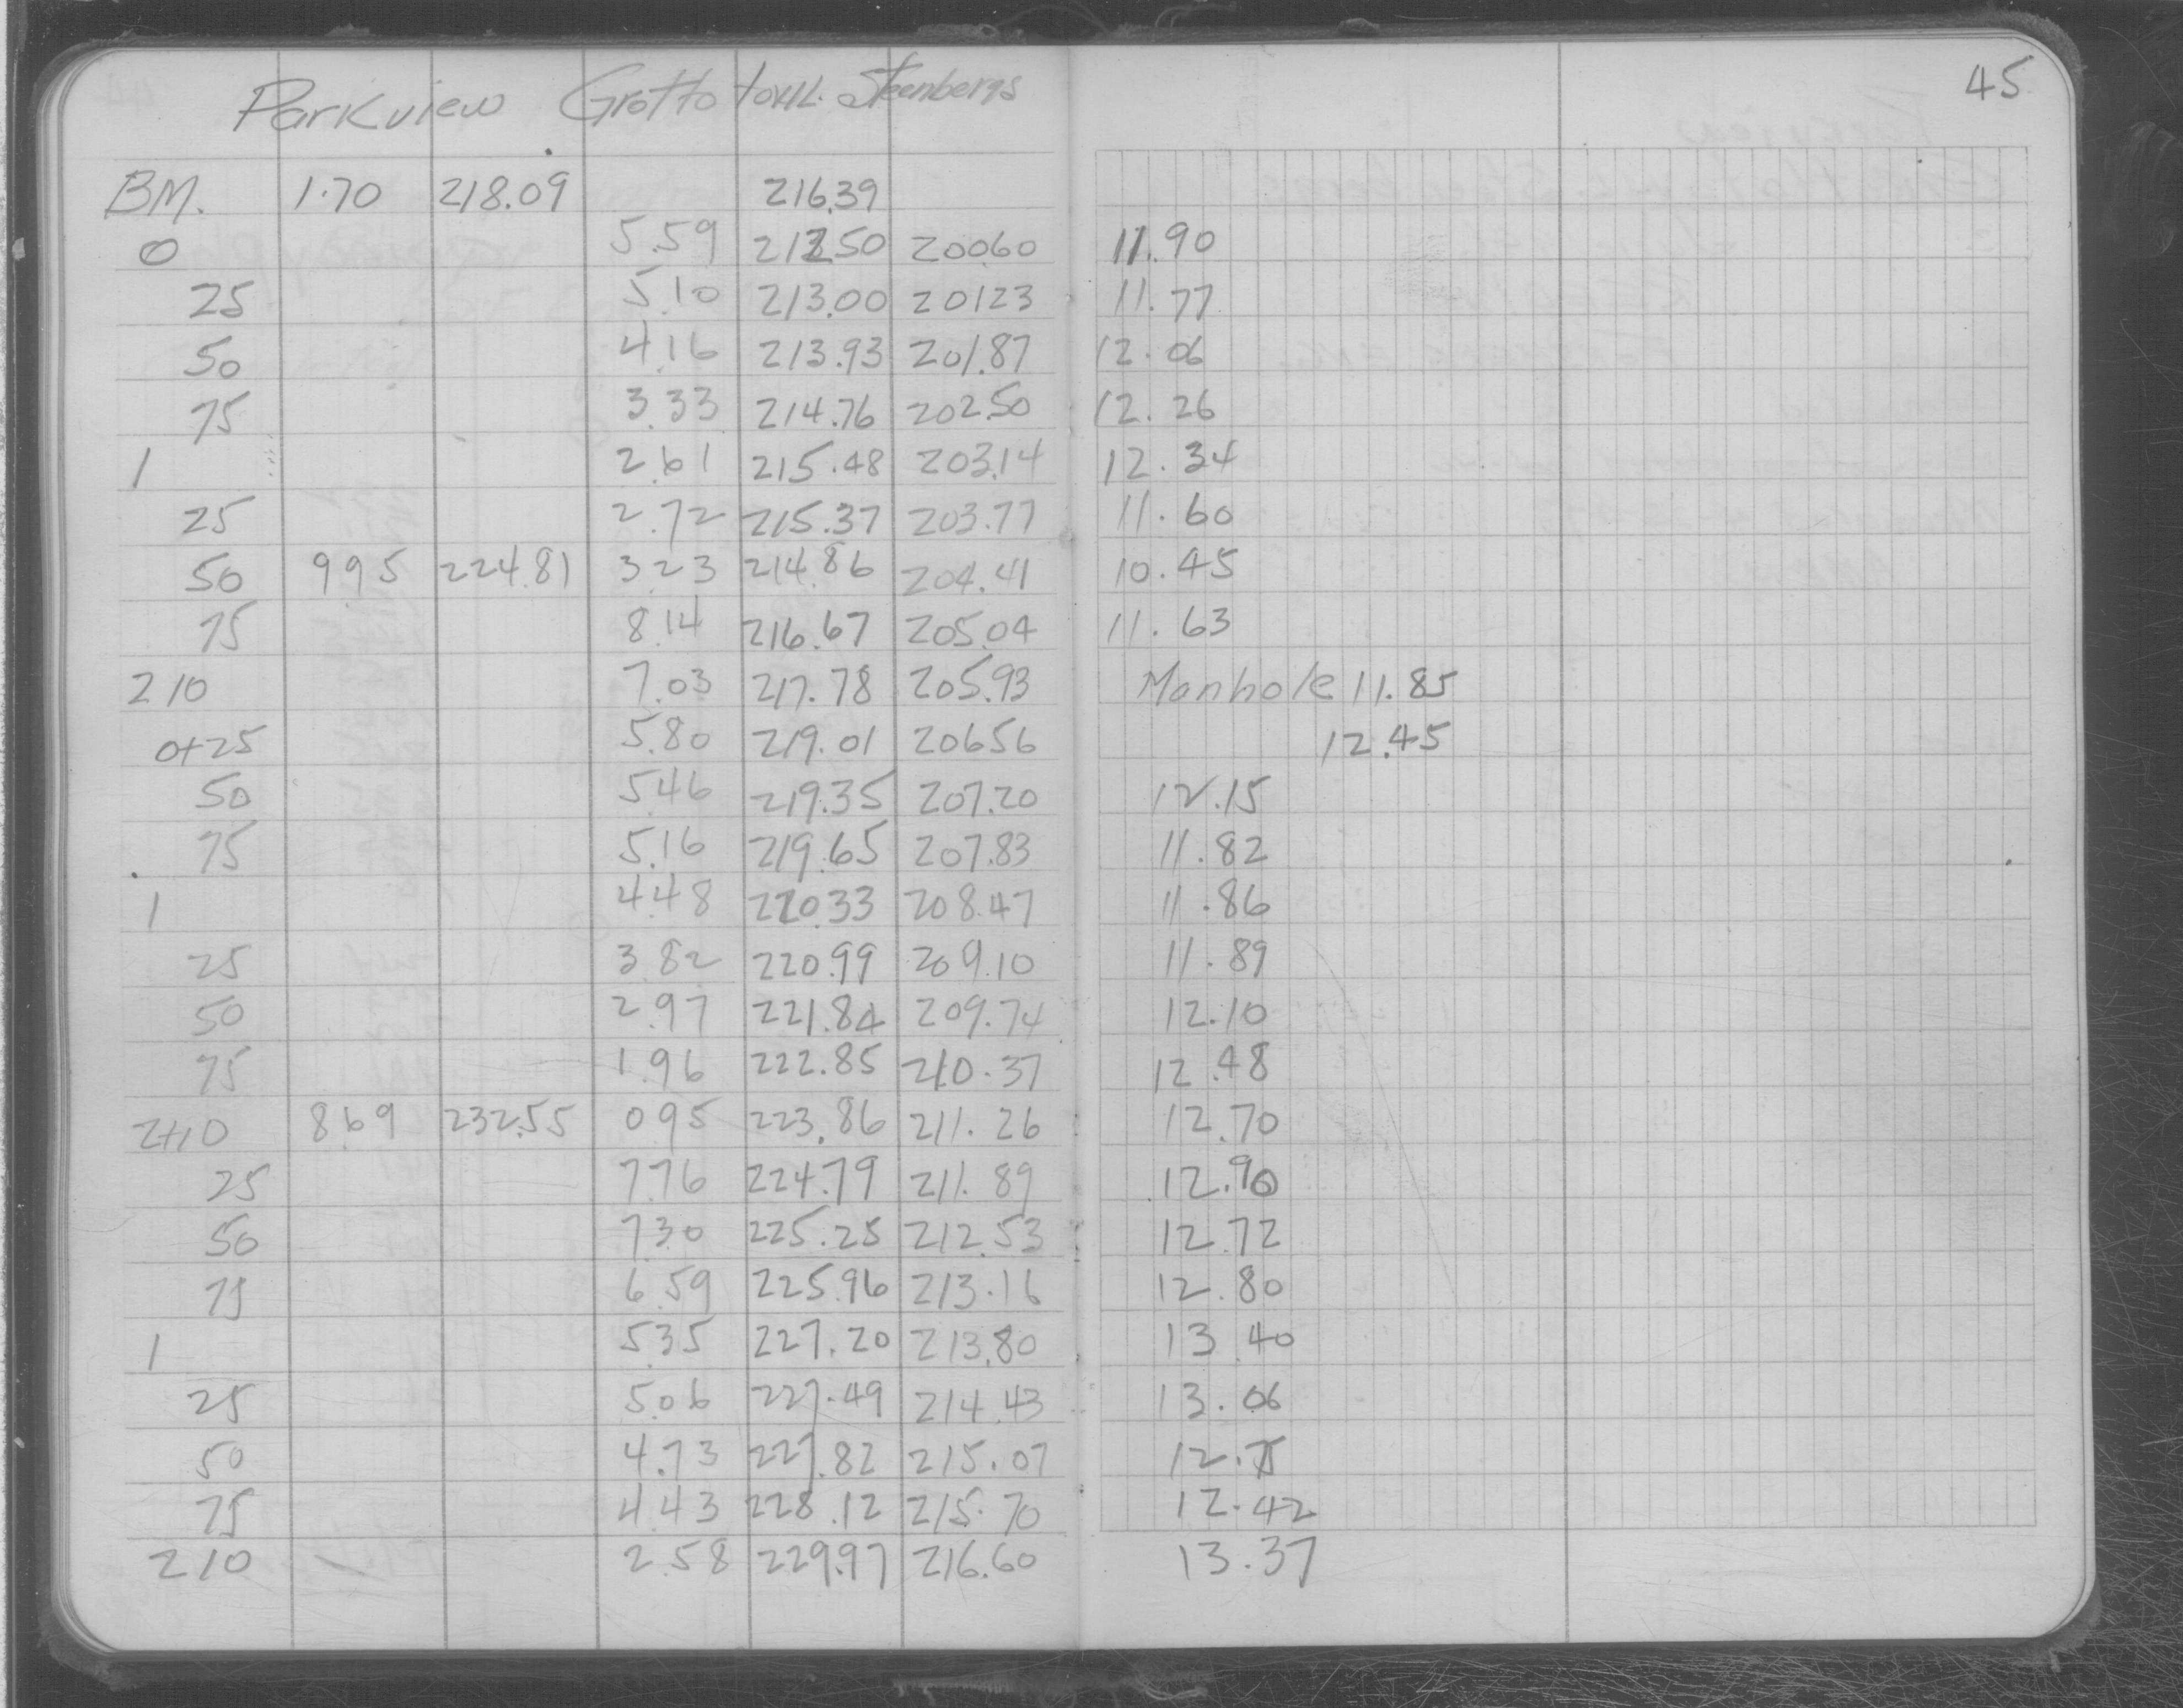 45
Parkview Grotto to Steenbergs
BM. 1.70 218.09 216.39
0 5.59 212.50 200.60 11.90
25 5.10 213.00 201.23 11.77
50 4.16 213.93 201.87 12.06
75 3.33 214.76 202.50 12.26
1 2.61 215.48 203.14 12.34
25 2.72 215.37 203.77 11.60
50 9.95 224.81 3.23 214.86 204.41 10.45
75 8.14 216.67 205.04 11.63
210 7.03 217.78 205.93 Manhole 11.85
0+25 5.80 219.01 206.56 12.45
50 5.46 219.35 207.20 12.15
75 5.16 219.65 207.83 11.82
1 4.48 220.33 208.47 11.86
25 3.82 220.99 209.10 11.89
50 2.97 221.84 209.74 12.10
75 1.96 222.85 210.37 12.48
2+10 8.69 232.55 0.95 223.86 211.26 12.70
25 7.76 224.79 211.89 12.90
50 7.30 225.25 212.53 12.72
75 6.59 225.96 213.16 12.80
1 5.35 227.20 213.80 13.40
25 5.06 227.49 214.43 13.06
50 4.73 227.82 215.07 12.75
75 4.43 228.12 215.70 12.42
210 2.58 229.97 216.60 13.37